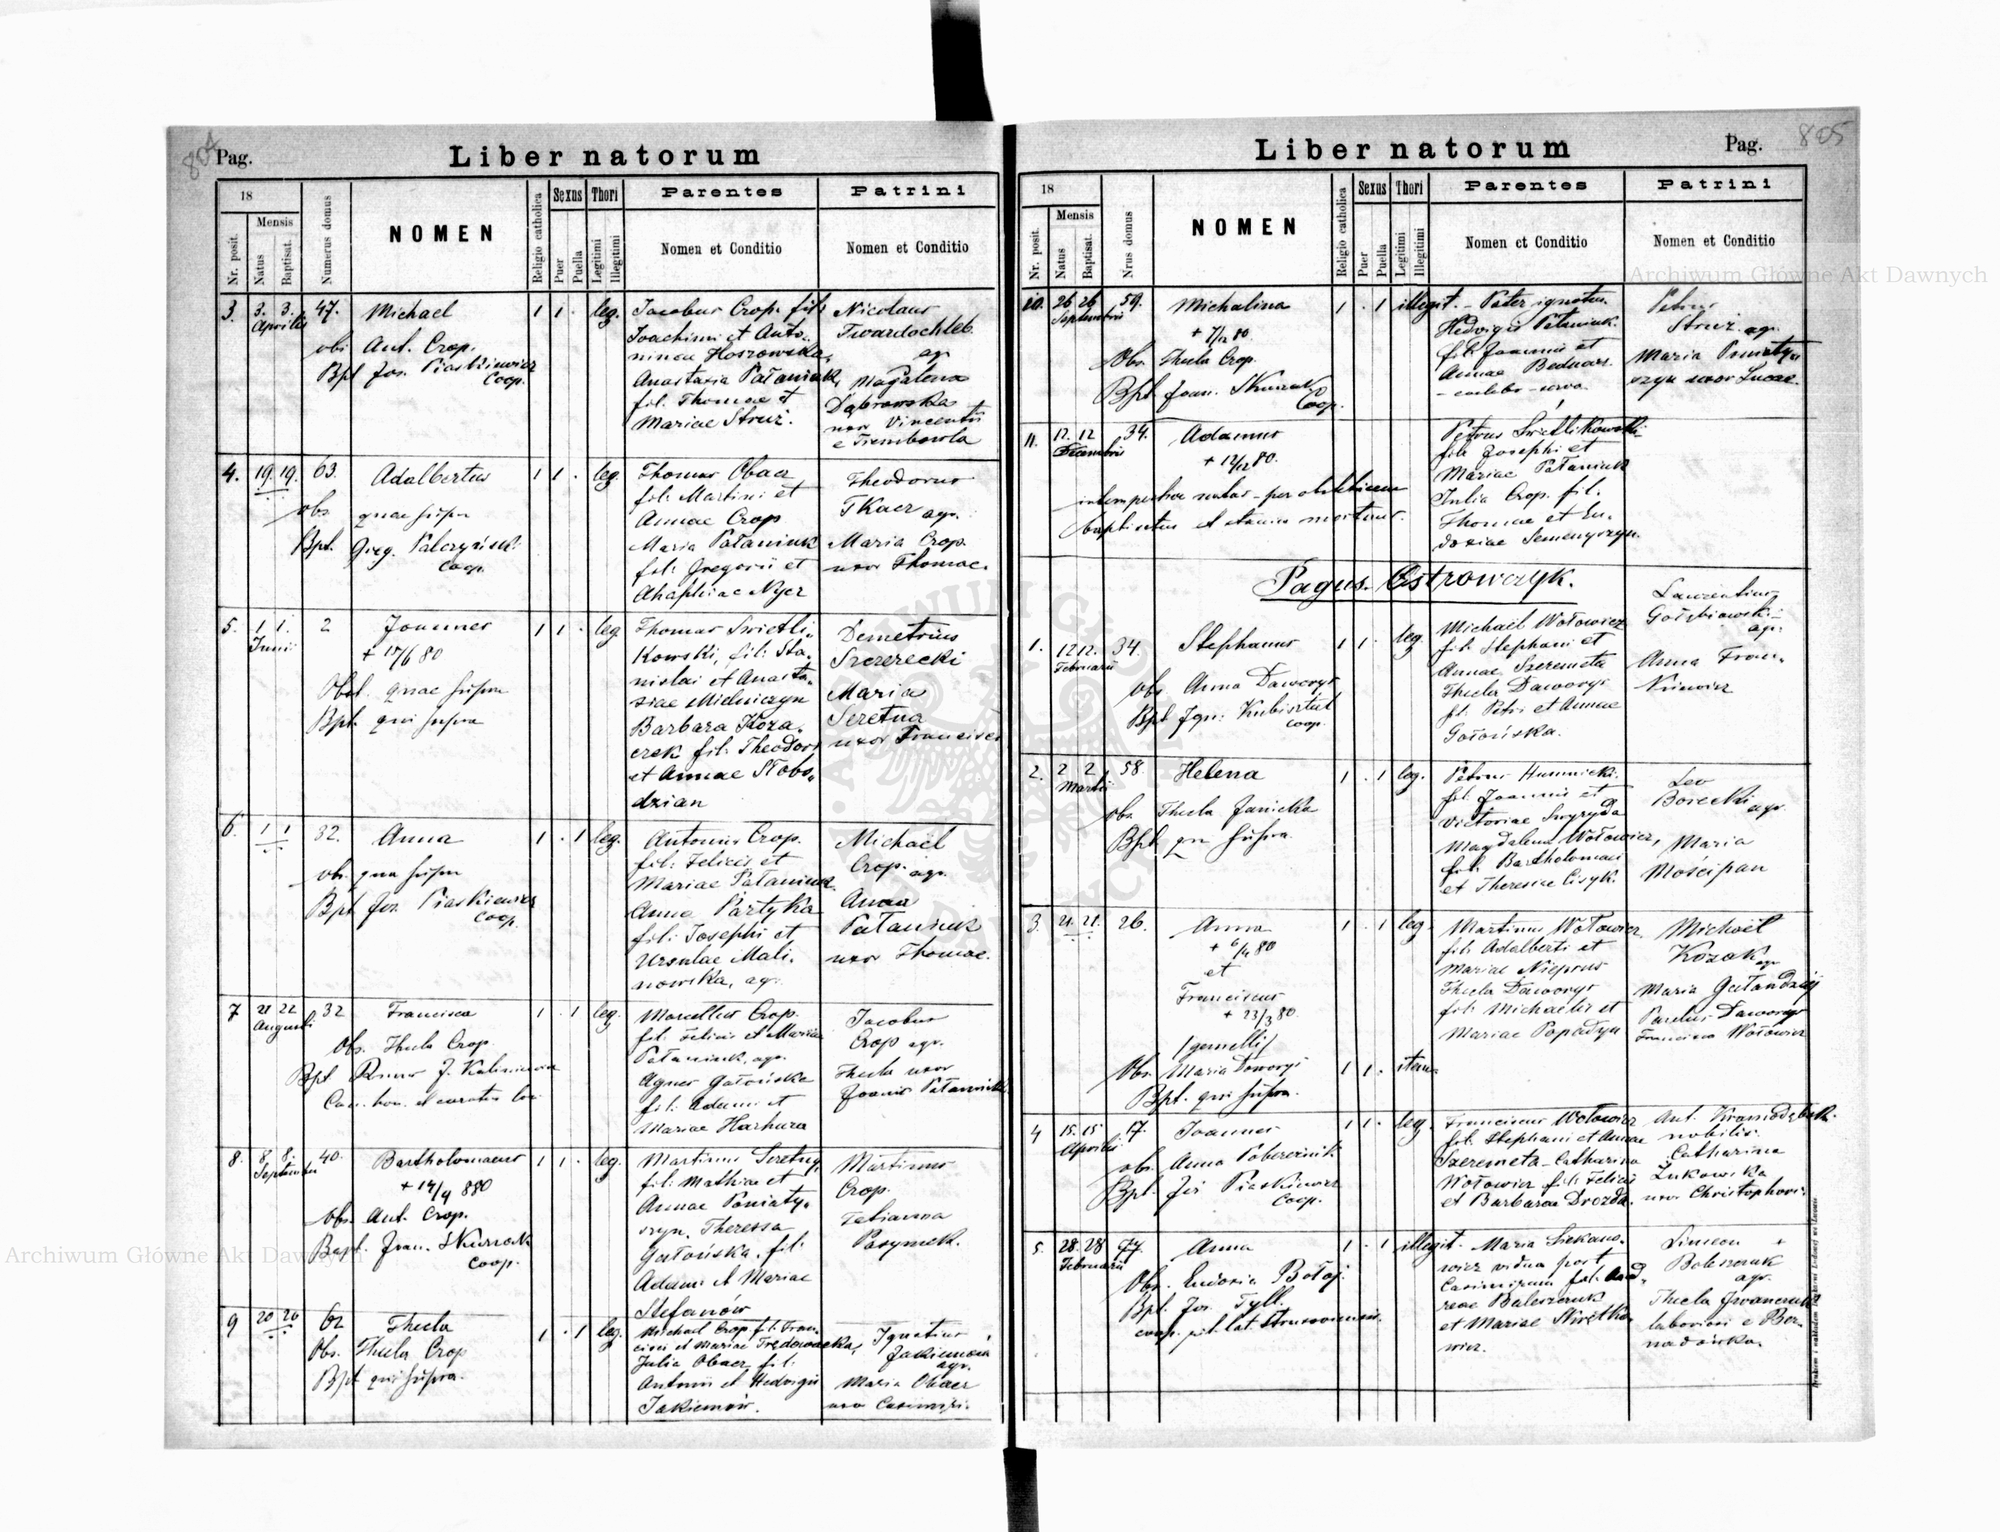 804
Pag.
Liber natorum
18
Mensis
Nr. posit.
Natus
Baptisat.
Numerus domus
NOMEN
Religio catholica
Sexus
Puer
Puella
Thori
Legitimi
Illegitimi
Parentes
Nomen et Conditio
Patrini
Nomen et Conditio
3. 3. 3. 47. Michael 1 1 . leg.
Aprilis
obs. Ant. Crop.
Bpt Jos. Piaskiewicz
Coop.
Jacobus Crop. fil:
Joachimi et Anto-
ninae Hoszowska,
Anastasia Pataniuk,
fil. Thomae et
Mariae Struż.
Nicolaus
Twardochleb
agr.
Magdalena
Dąbrowska
uxor Vincentii
e Trembowla
4. 19. 19. 63. Adalbertus 1 1 . leg.
obs. quae supra
Bpt. Greg. Palczyński
Coop.
Thomas Obacz
fil: Martini et
Annae Crop
Maria Pataniuk
fil: Gregorii et
Ahaphiae Nycz
Theodorus
Tkacz agr.
Maria Crop.
uxor Thomae.
5. 1. 1. 2 Joannes 1 1 . leg
Junii
+ 17/6 80
Obst. quae supra
Bpt. qui supra
Thomas Swietli-
kowski, fil: Sta-
nislai et Anasta-
siae Mielniczyn
Barbara Koza-
czek fil: Theodori
et Annae Słobo-
dzian
Demetrius
Szczerecki
Maria
Seretna
uxor Francisci
6. 1 1 32. Anna 1 . 1 leg.
obs. quae supra
Bpt Jos. Piaskiewicz
Coop.
Antonius Crop.
fil: Felicis et
Mariae Pataniuk
Anna Partyka
fil: Josephi et
Ursulae Mali-
nowska, agr.
Michael
Crop. agr.
Anna
Pataniuk
uxor Thomae.
7 21 22 32 Francisca 1 . 1 leg.
Augusti
Obs. Thecla Crop.
Marcellus Crop.
fil: Felicis et Mariae
Pataniuk, agr.
Agnes Gatońska
fil: Adami et
Mariae Harhura
Jacobus
Crop agr.
Thecla uxor
Joannis Pataniuk
8. 8. 8. 40. Bartholomaeus 1 1 . leg.
Septembris
+ 14/9 880
Obs. Ant. Crop.
Bapt. Fran. Skurzak
Coop.
Martinus Seretny,
fil: Mathiae et
Annae Poniaty-
szyn. Theressa
Gatońska, fil:
Adami et Mariae
Stefanów
Martinus
Crop.
Febianna
Pasymek.
9 20 20 62 Thecla 1 . 1 leg.
Obs. Thecla Crop
Bpt qui supra.
Michael Crop. fil: Fran-
cisci et Mariae Tredowaecka,
Julia Obacz, fil:
Antonii et Hedvigis
Jakiemów.
Ignatius
Jakiemów
agr.
Maria Obacz
uxor Casimiri.
Liber natorum
Pag.
805
18
Mensis
Nr. posit.
Natus
Baptisat.
Nrus domus
NOMEN
Religio catholica
Sexus
Puer
Puella
Thori
Legitimi
Illegitimi
Parentes
Nomen et Conditio
Patrini
Nomen et Conditio
10. 26 26 59. Michalina 1 . 1 illegit.
Septembris
+ 7/12 80.
Obs. Thecla Crop.
Bpt Fran. Skurzak
Coop.
Pater ignotus
Hedvigis Pataniuk
fil: Joannis et
Annae Bednarz.
Petrus
Struż agr.
Maria Poniaty-
szyn uxor Lucae.
11. 12. 12 34. Adamus
Decembris
+ 12/12 80.
intempestive natus - per obstetricem
baptisatus et statim mortuus.
Petrus Świetlikowski
fil: Josephi et
Mariae Pataniuk
Julia Crop. fil.
Thomae et Eu-
doxiae Semenyszyn.
Pagus. Ostrowczyk.
1. 12 12. 34. Stephanus 1 1 . leg.
Februarii
obs Anna Daworyt
Bpt Ign: Kubisztal
coop.
Michael Wołowicz
fil: Stephani et
Annae Szeremeta
Thecla Daworyt
fil: Petri et Annae
Gatońska.
Laurentius
Gołębiowski
agr.
Anna Fran-
2. 2 2 58. Helena 1 . 1 leg.
Martii
obs. Thecla Janicka
Bpt. qui supra.
Petrus Humnicki
fil. Joannis et
Victoriae Swyryda
Magdalena Wołowicz,
fil: Bartholomaei
et Theresiae Cisyk.
Leo
Borecki
agr.
Maria
Mościpan
3. 21. 21. 26. Anna 1 . 1 leg
+ 6/4 80
et
Franciscus
+ 23/3 80.
/gemelli/ 1 1 . item
Obs. Maria Daworyt
Bpt. qui supra.
Martinus Wołowicz
fil: Adalberti et
Mariae Nieprus
Thecla Daworyt
fil: Michaelis et
Mariae Popadyn
Michael
Kozak
agr
Maria Gałandzij
Paulus Daworyt
Francisca Wołowicz
4 15. 15 17. Joannes 1 1 . leg.
Aprilis
obs. Anna Pobereżnik
Bpt. Jos Piaskiewicz
Coop.
Franciscus Wołowicz
fil. Stephani et Annae
Szeremeta - Catharina
Wołowicz fil: Felicis
et Barbarae Drozda.
nobilis.
Catharina
Żukowska
uxor Christophori.
5. 28. 28 77. Anna 1 . 1 illegit.
Februarii
Obs. Eudoxia Bołoj.
Bpt. Jos. Tyll.
Maria Siekano-
wicz vidua post
Casimirum fil: And-
reae Baleszczuk
et Mariae Skretko-
wicz.
Simeon +
agr.
Archiwum Główne Akt Dawnych
Archiwum Główne Akt Dawnych
ARCHIWUM GŁÓWNE AKT DAWNYCH